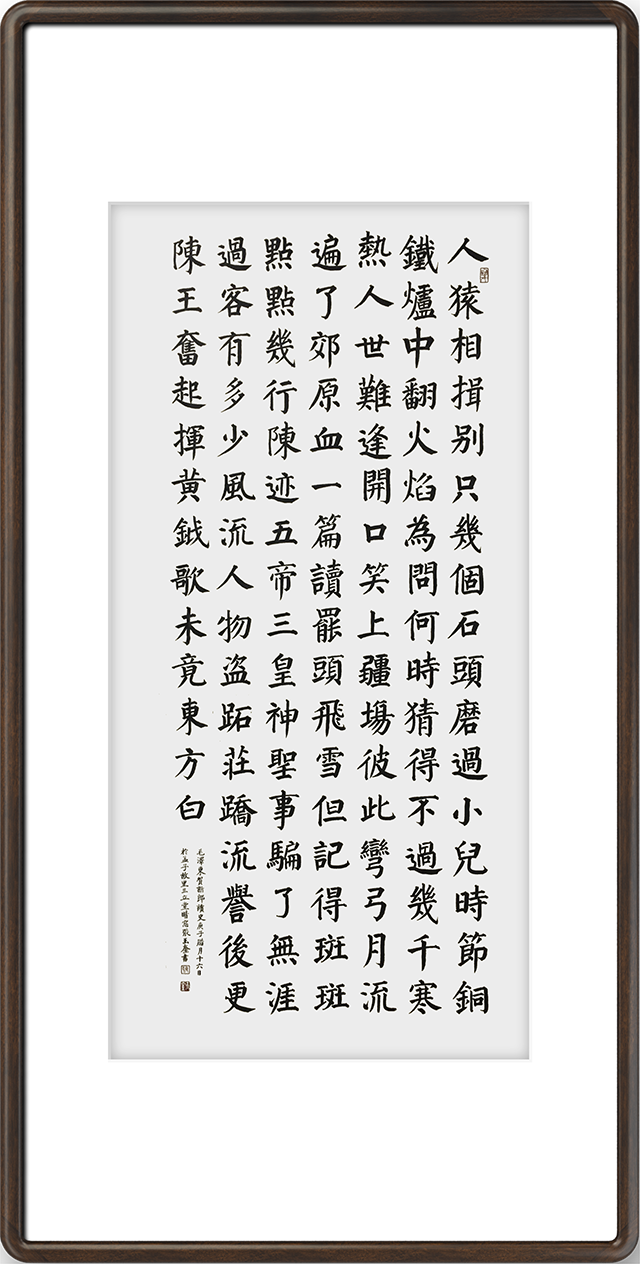 人猿相揖别只幾個石頭磨過小兒時節銅
鐵爐中翻火焰為問何時猜得不過幾千寒
熱人世難逢開口笑上疆場彼此彎弓月流
遍了郊原血一篇讀罷頭飛雪但記得斑斑
點點幾行陳迹五帝三皇神聖事騙了無涯
過客有多少風流人物盗跖莊蹻流譽後更
陳王奮起揮黃鉞歌未竟東方白
毛澤東賀新郎讀史庚子腊月十六日
於孟子故里三立堂晴窗玉書